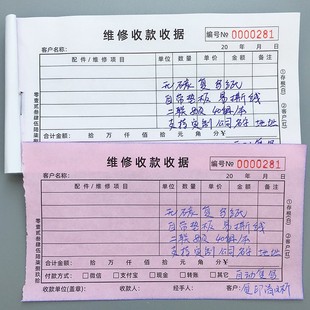 维修收款收据
编号№ 0000281
客户名称:
20 年 月 日
配件/维修项目 单位 数量 单价 金额 备注
无碳复写纸
自带垫板 易撕线
二联 40组/本
支持定制 公司名称 地址
合计金额: 拾 万 仟 佰 拾 元 角 分¥
零壹贰叁肆伍陆柒
①存根(白)
②客户(红)
维修收款收据
编号№ 0000281
客户名称:
20 年 月 日
配件/维修项目 单位 数量 单价 金额 备注
无碳复写纸
自带垫板 易撕线
二联 40组/本
支持定制 公司名称 地址
合计金额: 拾 万 仟 佰 拾 元 角 分¥
付款方式: □微信 □支付宝 □现金 □转账 □其它 自动复写
收款单位(盖章): 收款人: 经手人: 客户: 复印清晰
零壹贰叁肆伍陆柒捌玖拾
①存根(白)
②客户(红)